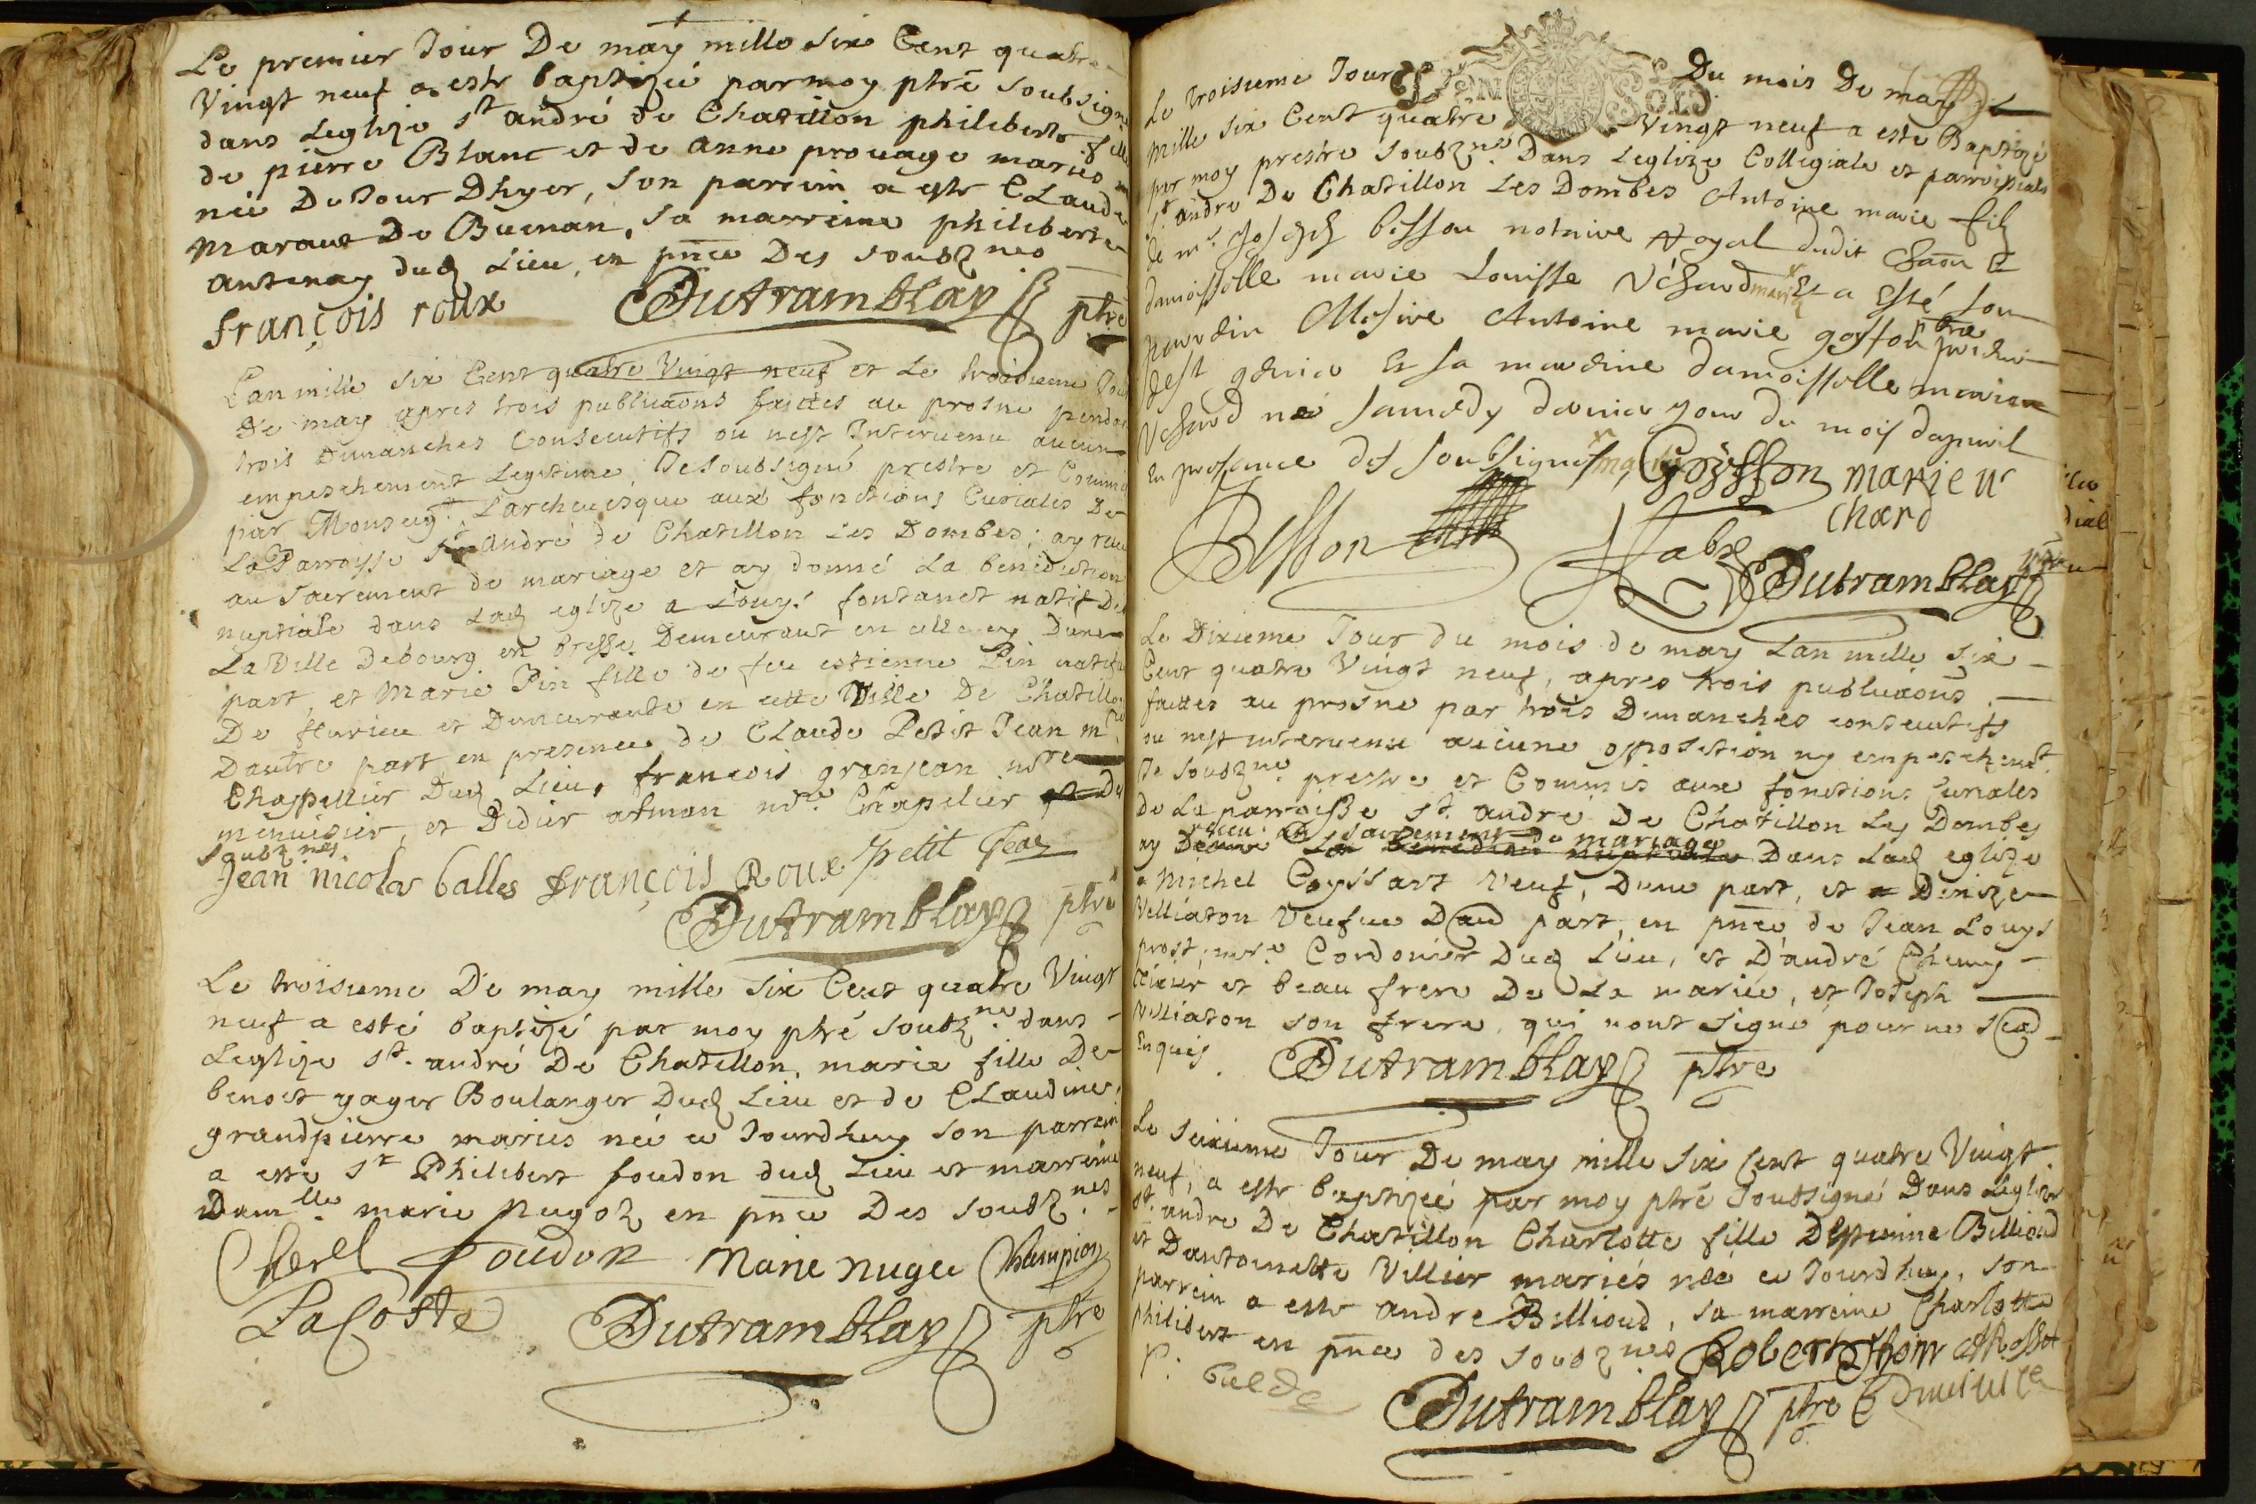 Le premier Jour De may mille six Cent quatre
Vingt neuf a este baptizée par moy ptre soubsigné
dans Leglize St andré de Chatillon philiberte fille
de pierre Blanc et de anne prouage mariés
née Du Jour Dhyer, son parrein a este CLaude
maraut De Buenan, sa marreine philiberte
antenay dud Lieu, en pnce Des soubznes
françois roux Dutramblay ptre
Lan mille six Cent quatre Vingt neuf et Le troisieme Jour
De may apres trois publicaons faittes au prosne pendant
trois Dimanches Consecutifs ou nest Interuenu aucun
empeschement Legitime, Je soubsigné prestre et Commis
par Monseigr. L'archeuesque aux fonctions Curiales De
La Parroisse St André de Chatillon Les Dombes; ay receu
au sacrement de mariage et ay donné La benediction
nuptiale dans Lad eglize a Louys fontanet natif De
La Ville Debourg en bresse Demeurant en cette Dune
part, et Marie Pin fille de feu estienne Pin natifue
De fleurieu et Demeurante en cette Ville De Chatillon
Dautre part en presence de CLaude Petit Jean me
Chappellier Dud Lieu, françois granjean me
menuisier, et Didier atman me Chapelier Des
soubznes
Jean nicolas balles françois Roux petit Jean
Dutramblay ptre
Le troisieme De may mille six Cent quatre Vingt
neuf a esté baptizé par moy ptre soubzne dans
Leglize St. andré De Chatillon, marie fille De
benoit yager Boulanger Dud Lieu et de CLaudine
grandpierre mariés née ce Jourdhuy son parrein
a este Sr Philibert foudon dud Lieu et marreine
Damlle marie nugoz en pnce Des soubznes
Cherel foudon Marie nugue Champion
LaCoste Dutramblay ptre
Le troisieme Jour Du mois De may
mille six Cent quatre Vingt neuf a este Baptizé
par moy prestre soubzné Dans Leglize Collegiale et parroissiale
St andre De Chatillon Les Dombes Antoine marie fils
de mr. Joseph besson notaire Royal dudit Chaon Et
damoiselle marie Louisse Vchard mariés Et a Esté son
parrein Messire Antoine marie goyffon ptre
Et sa mardine damoisselle marie
Vchard né samedy dernier jour du mois dapuril
En presance des soubsignes Goyffon marie u
chard
Besson fabre Dutramblay ptre
Le Dixieme Jour du mois de may Lan mille six
Cent quatre Vingt neuf, apres trois publicaons
faittes au prosne par trois Dimanches consecutifs
ou nest interuenu aucune opposition ny empeschemt
Je soubzné prestre et Commis aux fonctions Curiales
de La parroisse St. andré De Chatillon Les Dombes
receu au sacrement de mariage
ay Donné La benediction nuptiale Dans Lad eglize
a Michel Coyssart Veuf, Dune part, et a Denize
Velliaton Veufue Daud part, en pnce de Jean Louys
prost me Cordonier Dud Lieu, et D'andré
et beau frere De La mariée, et Joseph
Velliaton son frere, qui nont signé pour ne
Enquis. Dutramblay ptre
Le seixieme Jour De may mille six Cent quatre Vingt
neuf, a este baptizée par moy ptre soubsigné Dans Leglize
St. andre De Chatillon Charlotte fille Destienne Billioud
et Dantoinette Villier mariés née ce Jourdhuy, son
parrein a este andre Billioud, sa marreine Charlotte
philibert en pnce des soubznes Robert
Dutramblay ptre